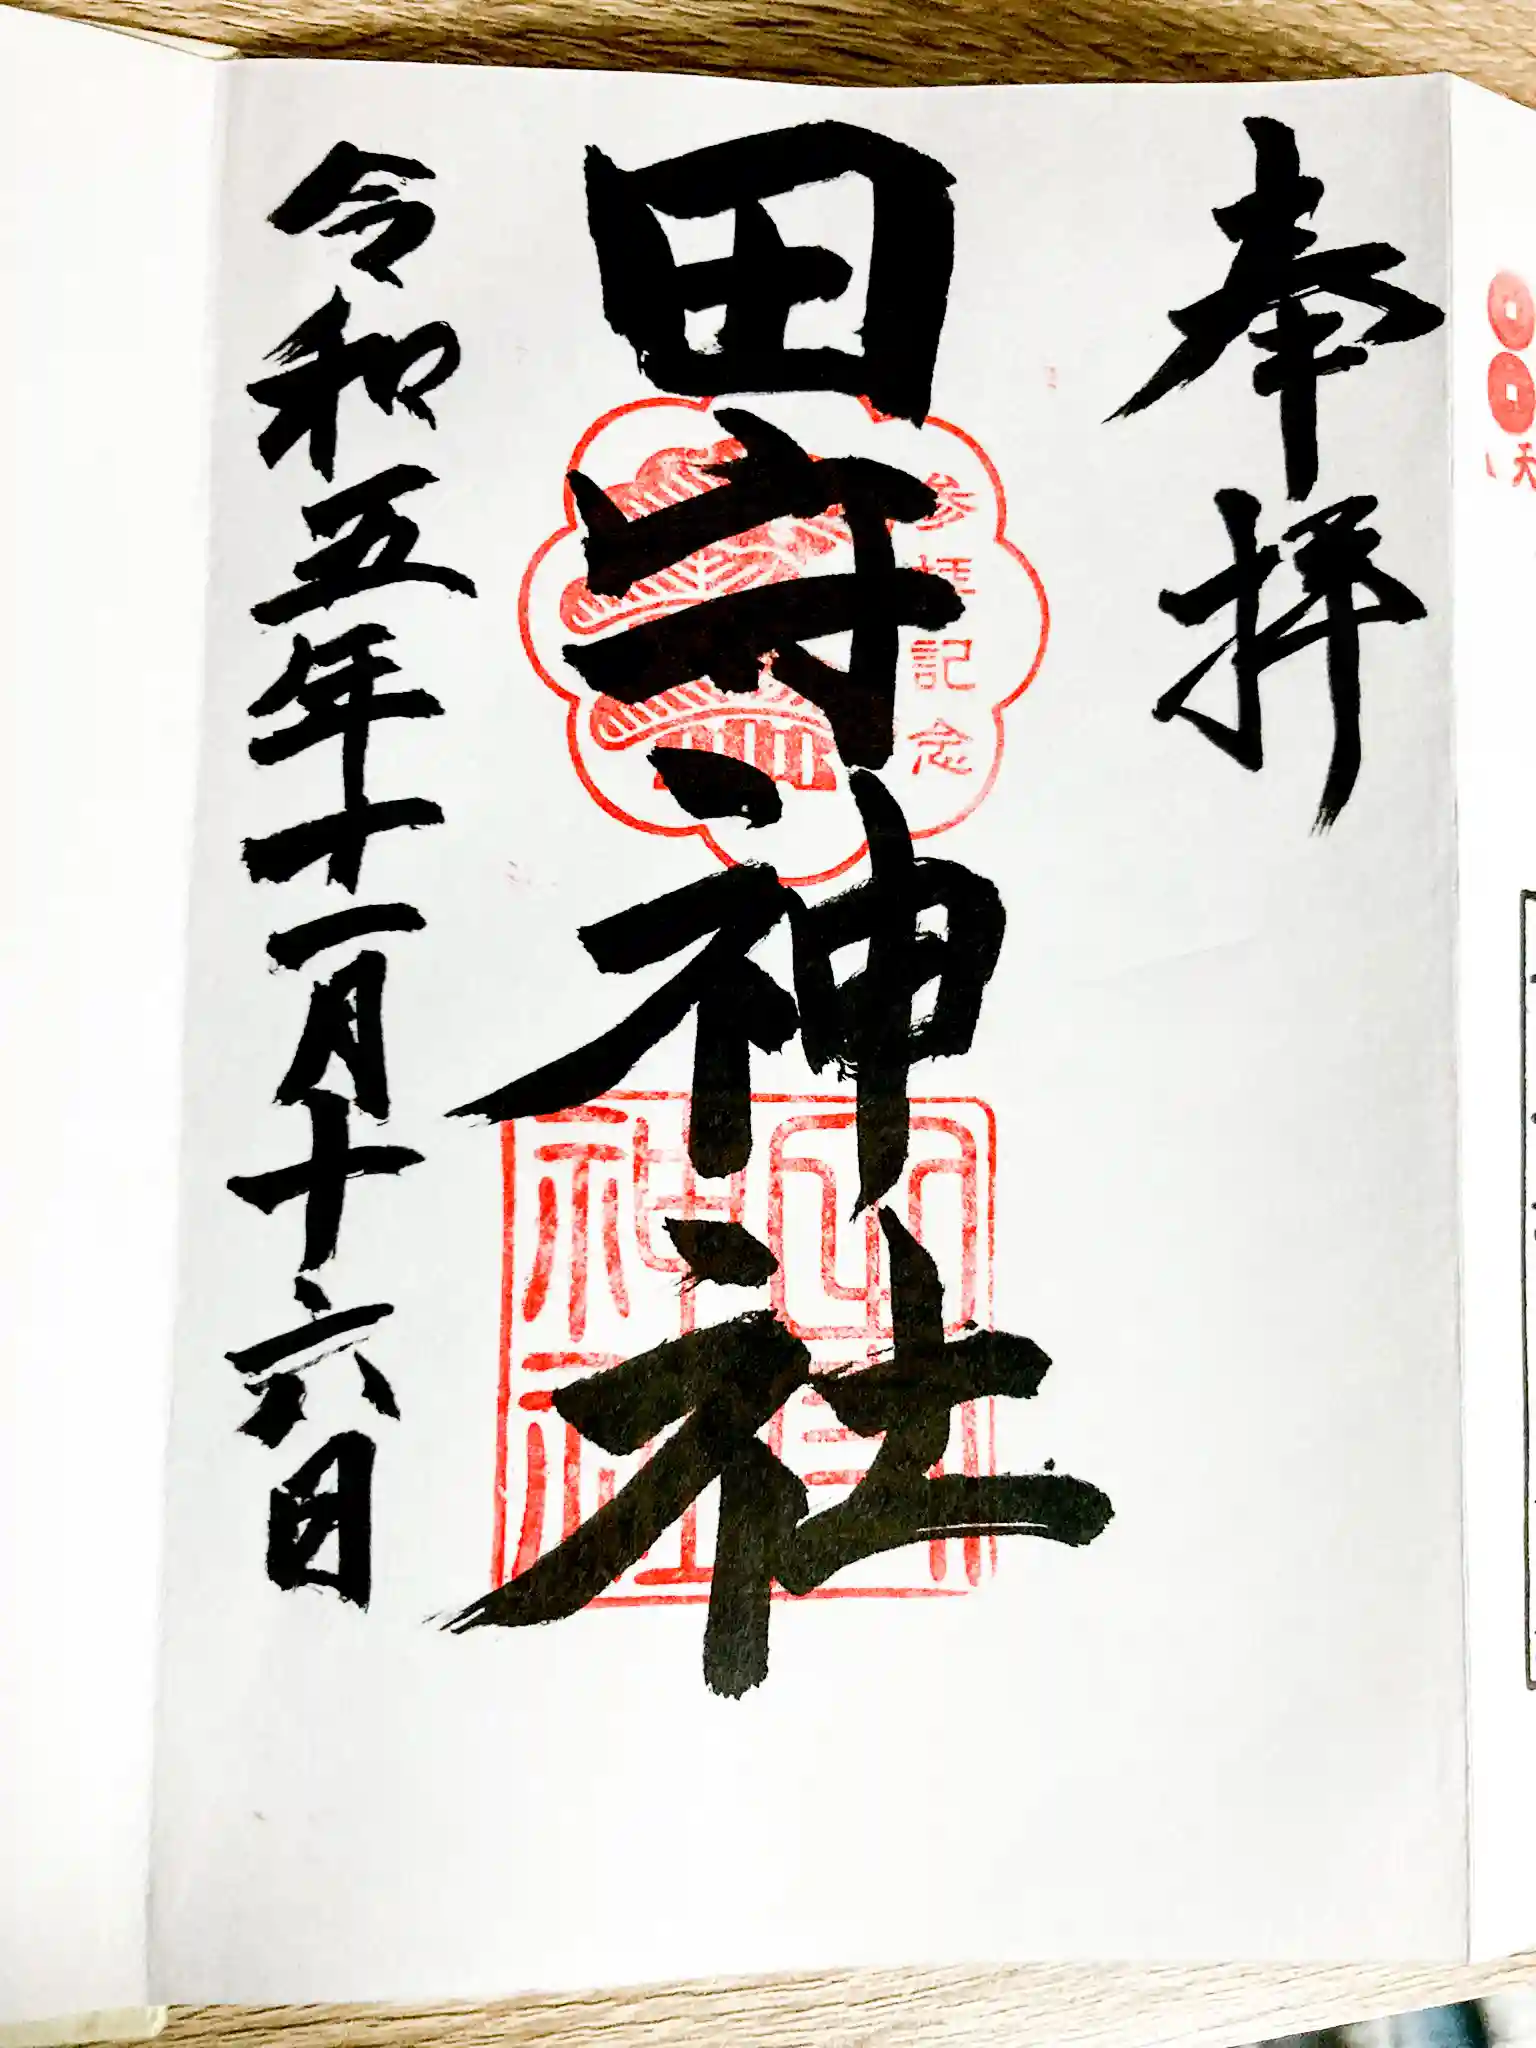 奉拝
田守神社
参拝記念
令和五年十一月十六日
天